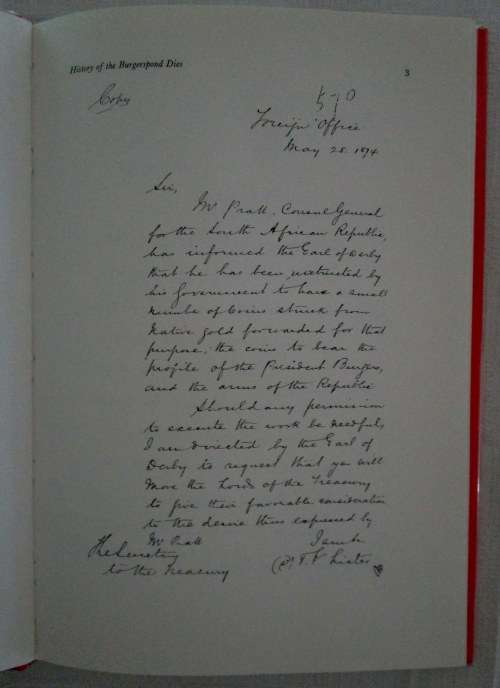 History of the Burgerspond Dies
3
Copy
570
Foreign Office
May 28. 1874
Sir,
Mr Pratt, Consul General
for the South African Republic,
has informed the Earl of Derby
that he has been instructed by
his Government to have a small
number of Coins struck from
Native gold forwarded for that
purpose; the coins to bear the
profile of the President Burgers,
and the arms of the Republic
Should any permission
to execute the work be needful,
I am directed by the Earl of
Derby to request that you will
Move the Lords of the Treasury
to give their favorable consideration
to the desire thus expressed by
Mr Pratt
I am &c
The Secretary
(s) T. V Lister
to the Treasury